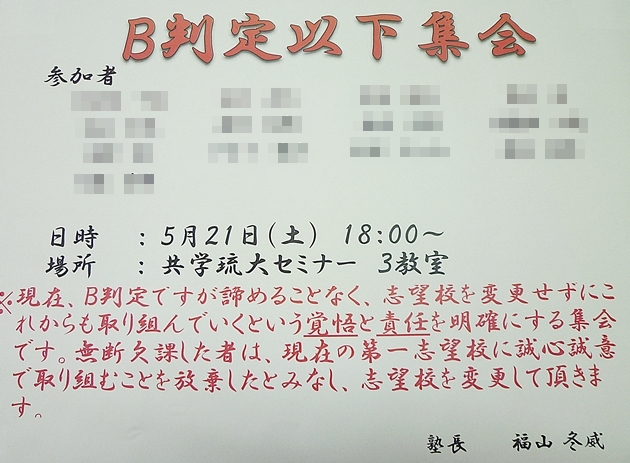 B判定以下集会
参加者
日時 : 5月21日(土) 18:00~
場所 : 共学琉大セミナー 3教室
※現在、B判定ですが諦めることなく、志望校を変更せずにこ
れからも取り組んでいくという覚悟と責任を明確にする集会
です。無断欠課した者は、現在の第一志望校に誠心誠意
で取り組むことを放棄したとみなし、志望校を変更して頂きま
す。
塾長 福山 冬威